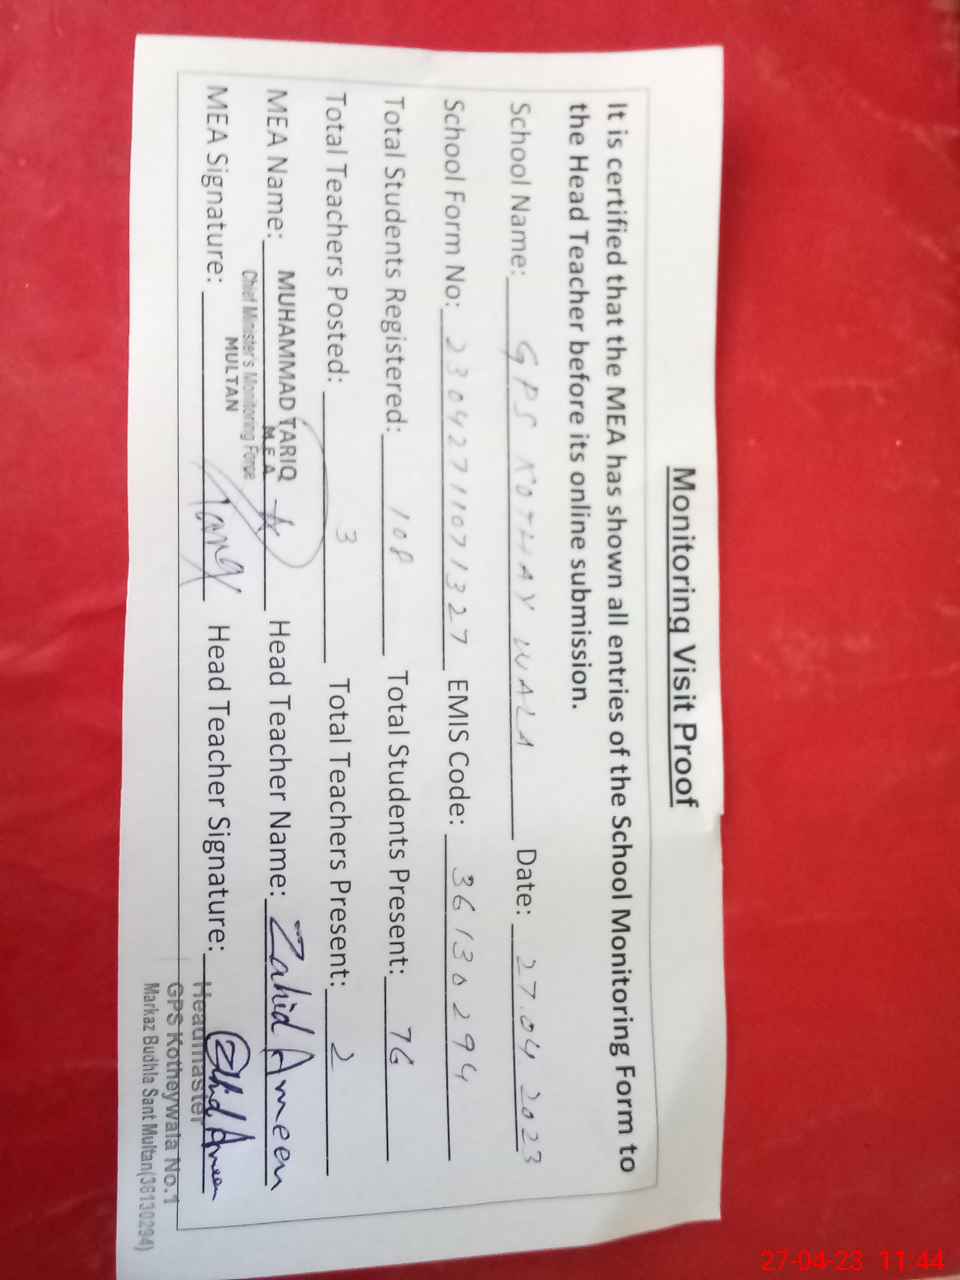 Monitoring Visit Proof
It is certified that the MEA has shown all entries of the School Monitoring Form to
the Head Teacher before its online submission.
School Name: GPS KOTHAY WALA Date: 27.04.2023
School Form No: 23042711071327 EMIS Code: 36130294
Total Students Registered: 108 Total Students Present: 76
Total Teachers Posted: 3 Total Teachers Present: 2
MEA Name: MUHAMMAD TARIQ Head Teacher Name: Zahid Ameen
M E A
Chief Minister's Monitoring Force
MULTAN
MEA Signature: Tariq Head Teacher Signature: Zahid Ameen
Headmaster
GPS Kotheywala No.1
Markaz Budhla Sant Multan(36130294)
27-04-23 11:44